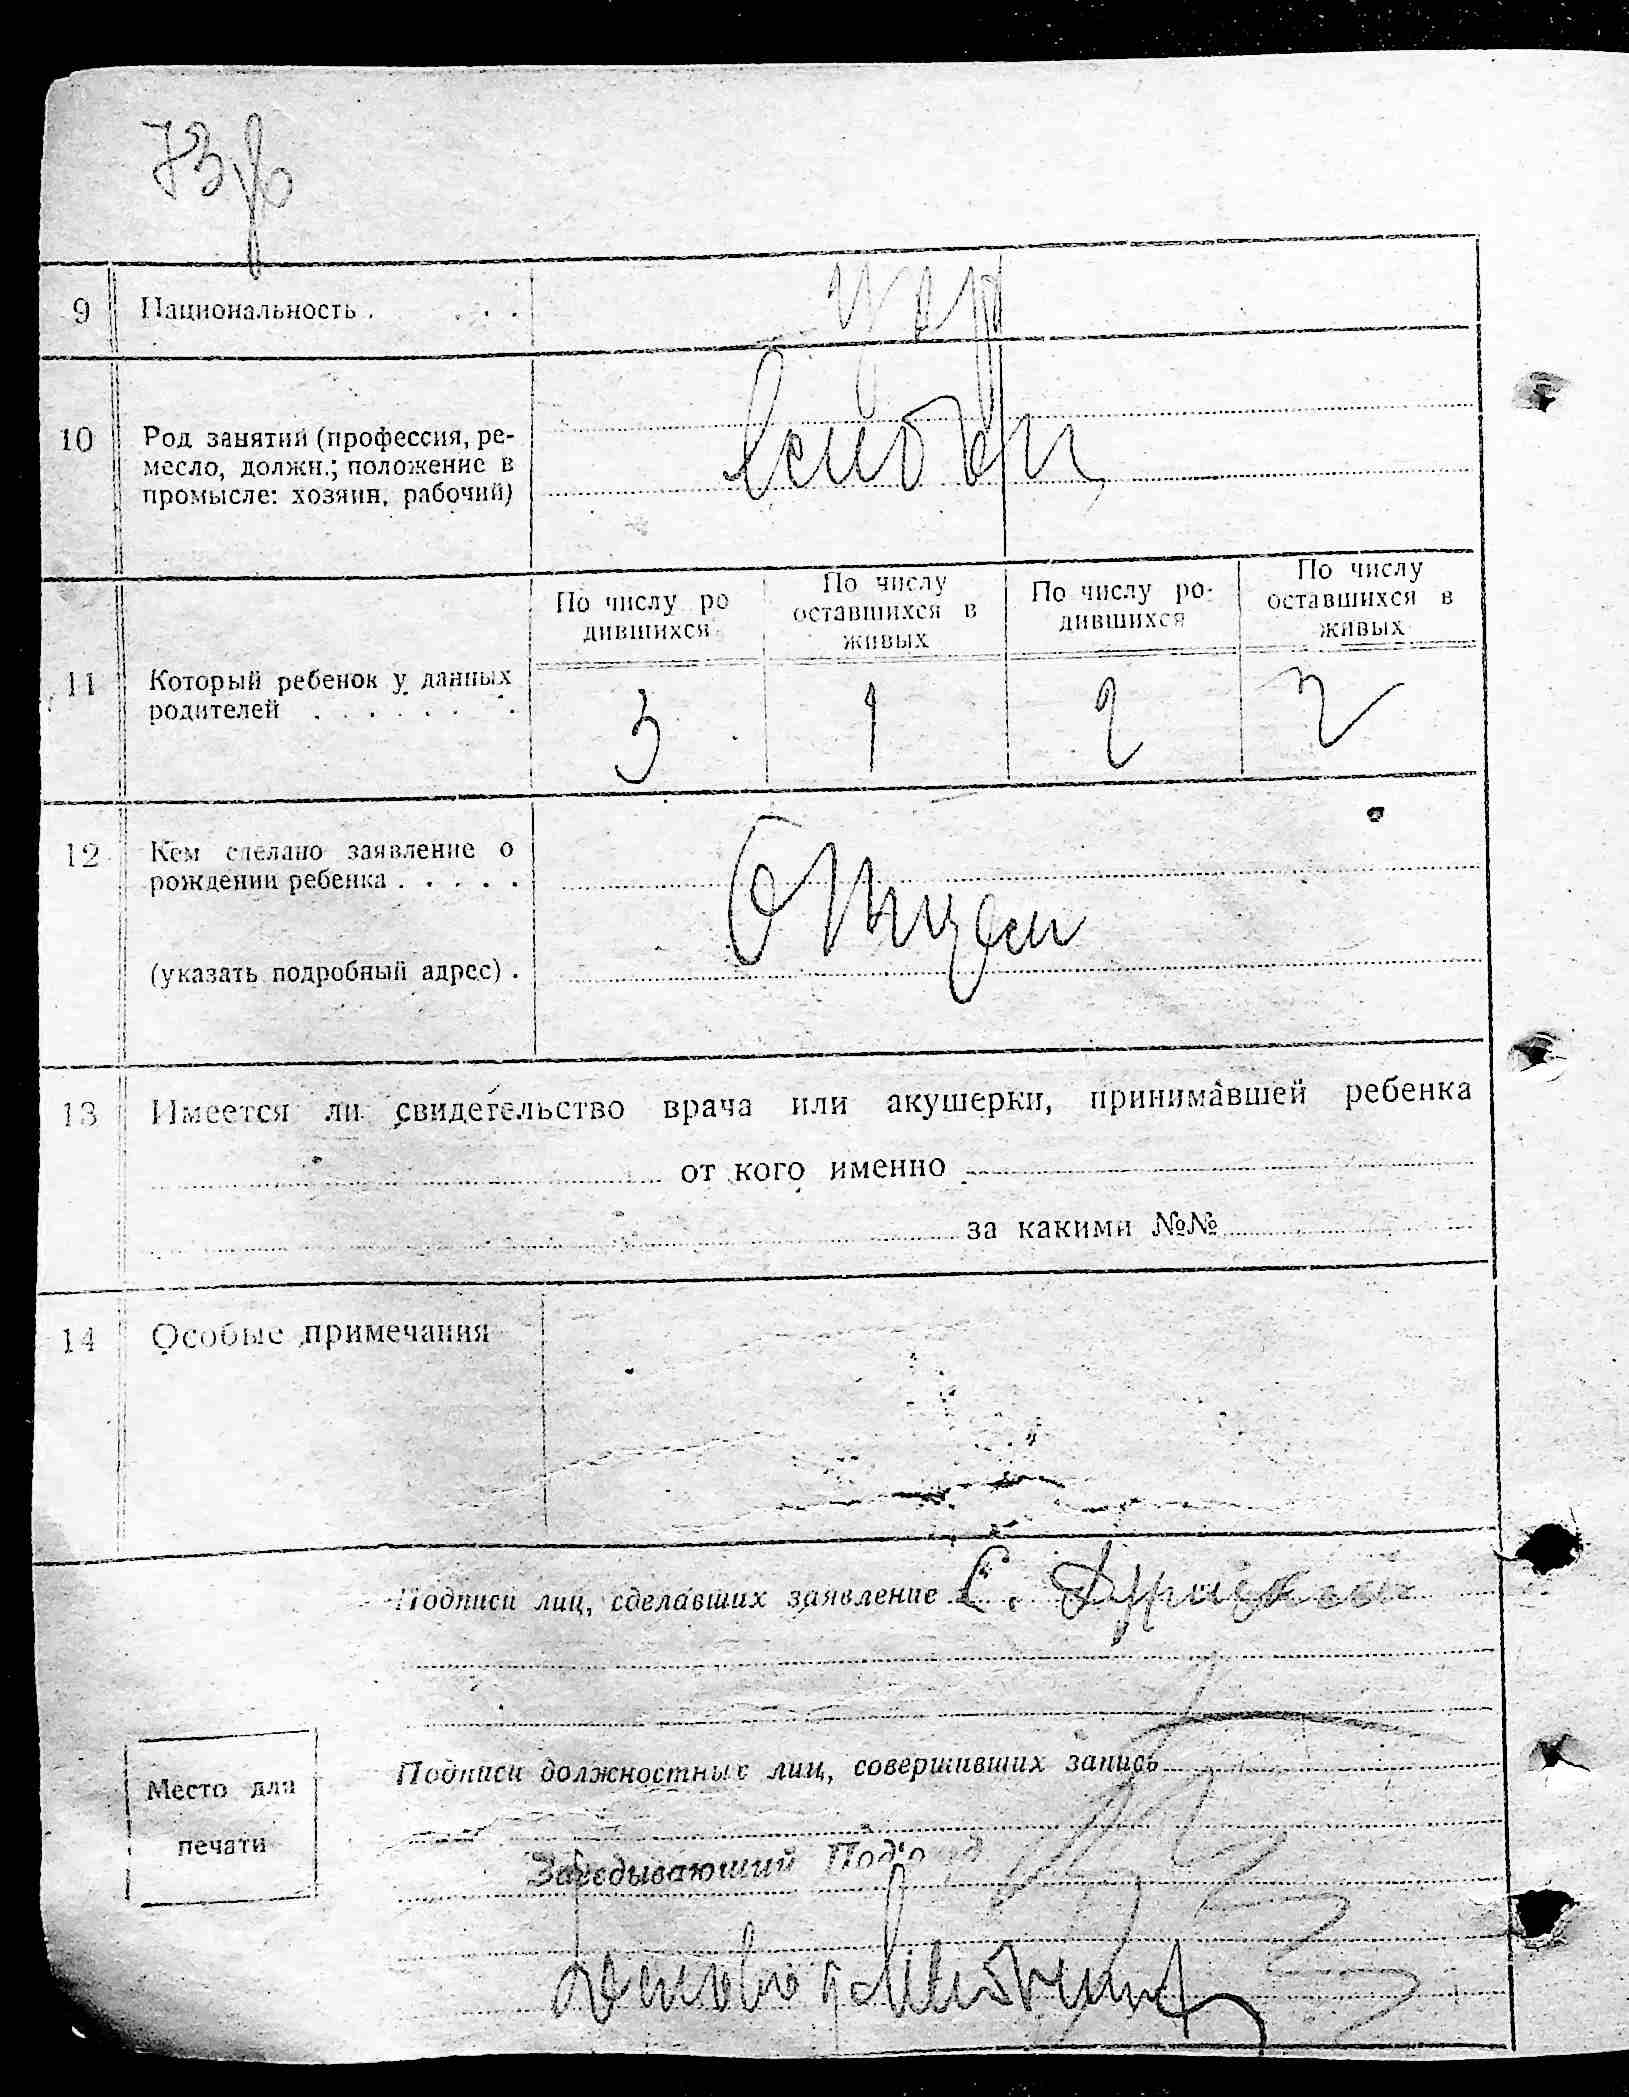 73 
9 Национальность . . . . укр
10 Род занятий (профессия, ре-
месло, должн.; положение в
промысле: хозяин, рабочий)
По числу ро
дившихся
По числу
оставшихся в
живых
По числу ро-
дившихся
По числу
оставшихся в
живых
11 Который ребенок у данных
родителей . . . . . . .
3 1 2 2
12 Кем сделано заявление о
рождении ребенка . . . . .
Отцем
(указать подробный адрес) .
13 Имеется ли свидетельство врача или акушерки, принимавшей ребенка
от кого именно
за какими №№
14 Особые примечания
Подписи лиц, сделавших заявление С.
Подписи должностных лиц, совершивших запись
Место для
печати
Заведывающий